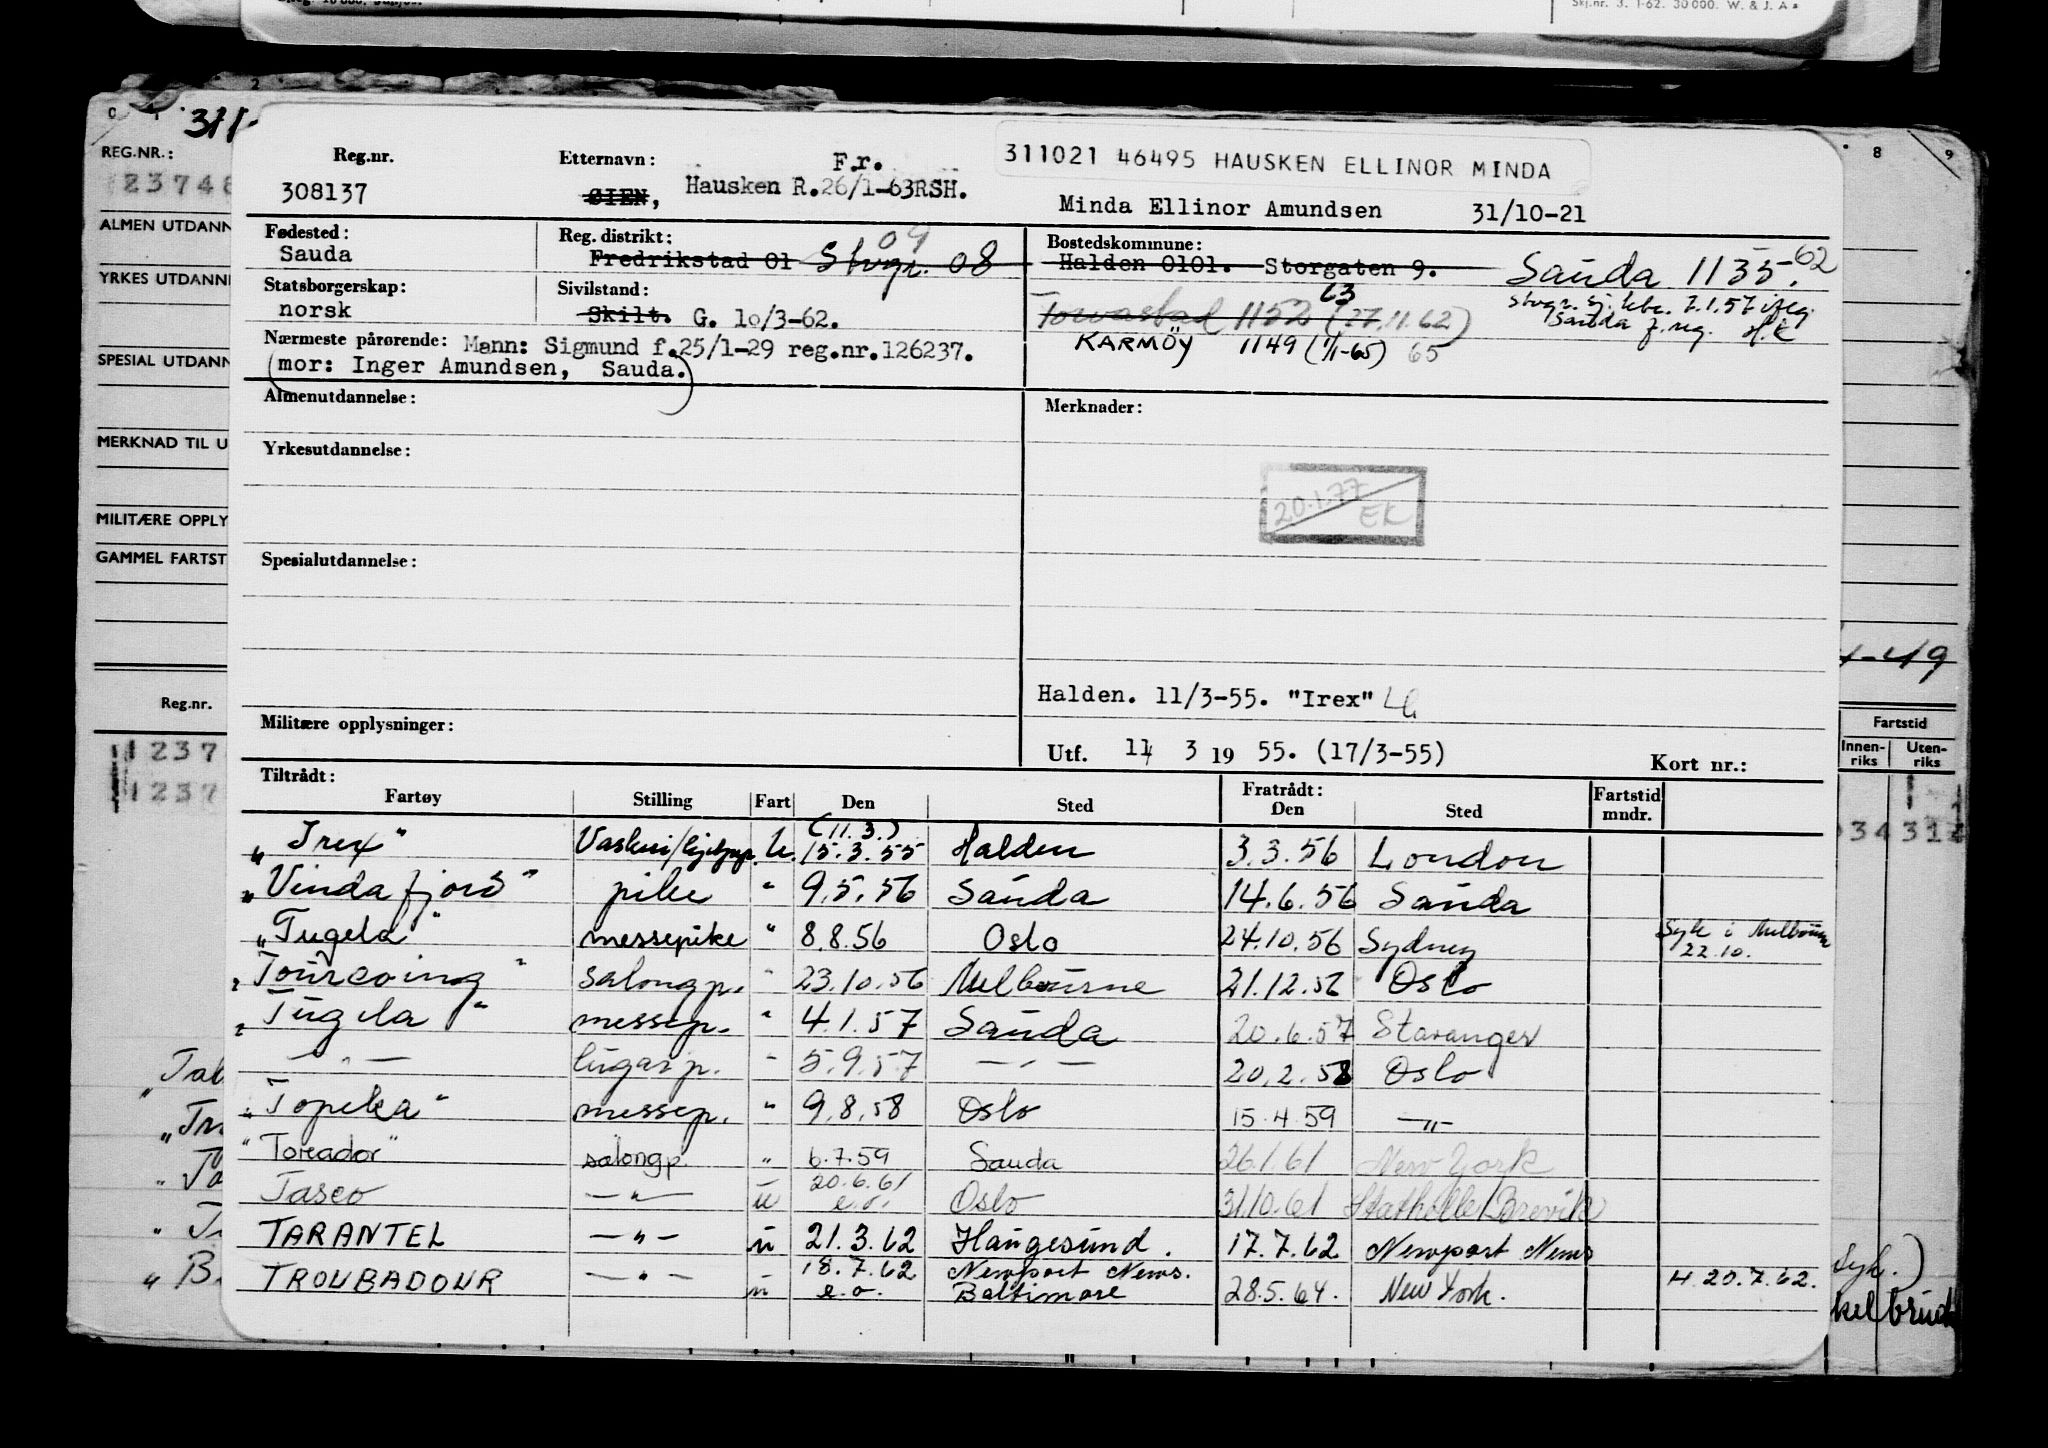 Skj.nr. 3. 1-62. 30 000. W. & J. A
311-
REG.NR.:
ALMEN UTDANN
YRKES UTDANN
SPESIAL UTDANN
MERKNAD TIL U
MILITÆRE OPPLY
GAMMEL FARTST
Reg.nr.
1237
1237
Reg.nr. Etternavn: F.r. 311021 46495 HAUSKEN ELLINOR MINDA
308137 ØIEN, Hausken R.26/1-63RSH. Minda Ellinor Amundsen 31/10-21
Fødested: Reg. distrikt: 09 Bostedskommune:
Sauda Fredrikstad 01 Stvgr. 08 Halden 0101. Storgaten 9. Sauda 1135. 62
Statsborgerskap: Sivilstand: 63 Stvgr. sj. 7.1.57
norsk Skilt. G. 10/3-62. Torvastad 1152 (27.11.62) Sauda f. reg. H.K
Nærmeste pårørende: Mann: Sigmund f.25/1-29 reg.nr.126237. KARMÖY 1149 (1/1-65) 65
(mor: Inger Amundsen, Sauda.)
Almenutdannelse: Merknader:
Yrkesutdannelse:
20.1.77 EK
Spesialutdannelse:
Halden. 11/3-55. "Irex"
Militære opplysninger:
Utf. 11 3 19 55. (17/3-55) Kort nr.:
Tiltrådt: Fratrådt: Fartstid
Fartøy Stilling Fart Den Sted Den Sted mndr.
(11.3.)
„Irex" U. 15.3.55 Halden 3.3.56 London
„Vindafjord" pike " 9.5.56 Sauda 14.6.56 Sauda
„Tugela" messepike " 8.8.56 Oslo 24.10.56 Sydney Syk i Melbourne 22.10.
„Tourcoing" salongp. " 23.10.56 Melbourne 21.12.56 Oslo
„Tugela" messep. " 4.1.57 Sauda 20.6.57 Stavanger
— " — lugarp. " 5.9.57 — " — 20.2.58 Oslo
„Topeka" messep. " 9.8.58 Oslo 15.4.59 — " —
"Toreador" salongp. " 6.7.59 Sauda 26.1.61 New York
Tasco — " — u 20.6.61 e.o. Oslo 31.10.61 Stathelle/Brevik
TARANTEL — " — u 21.3.62 Haugesund. 17.7.62 Newport News
TROUBADOUR — " — u 18.7.62 e.o. Newport News. Baltimore 28.5.64. New York. H. 20.7.62.
8 9
4-49
Fartstid
Innen-riks Uten-riks
34 31
Syk.)